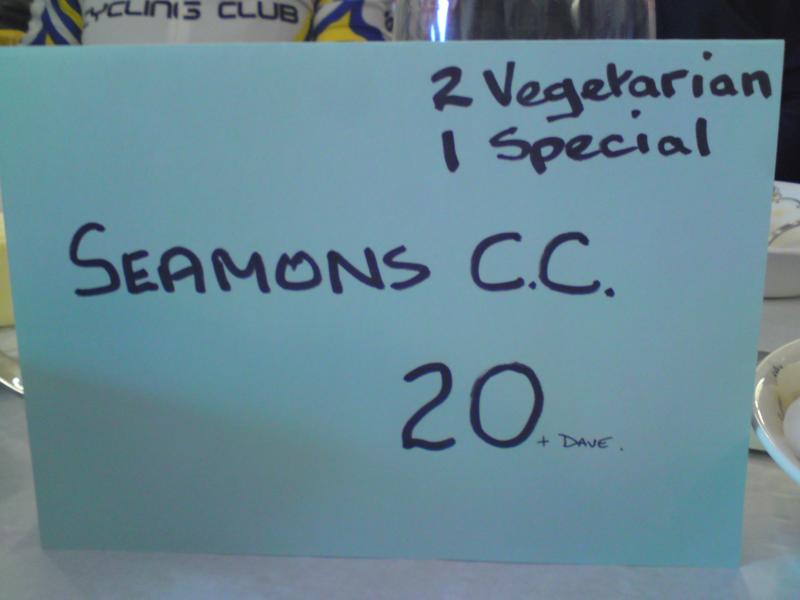 CYCLING CLUB
2 Vegetarian
1 Special
SEAMONS C.C.
20 + DAVE.